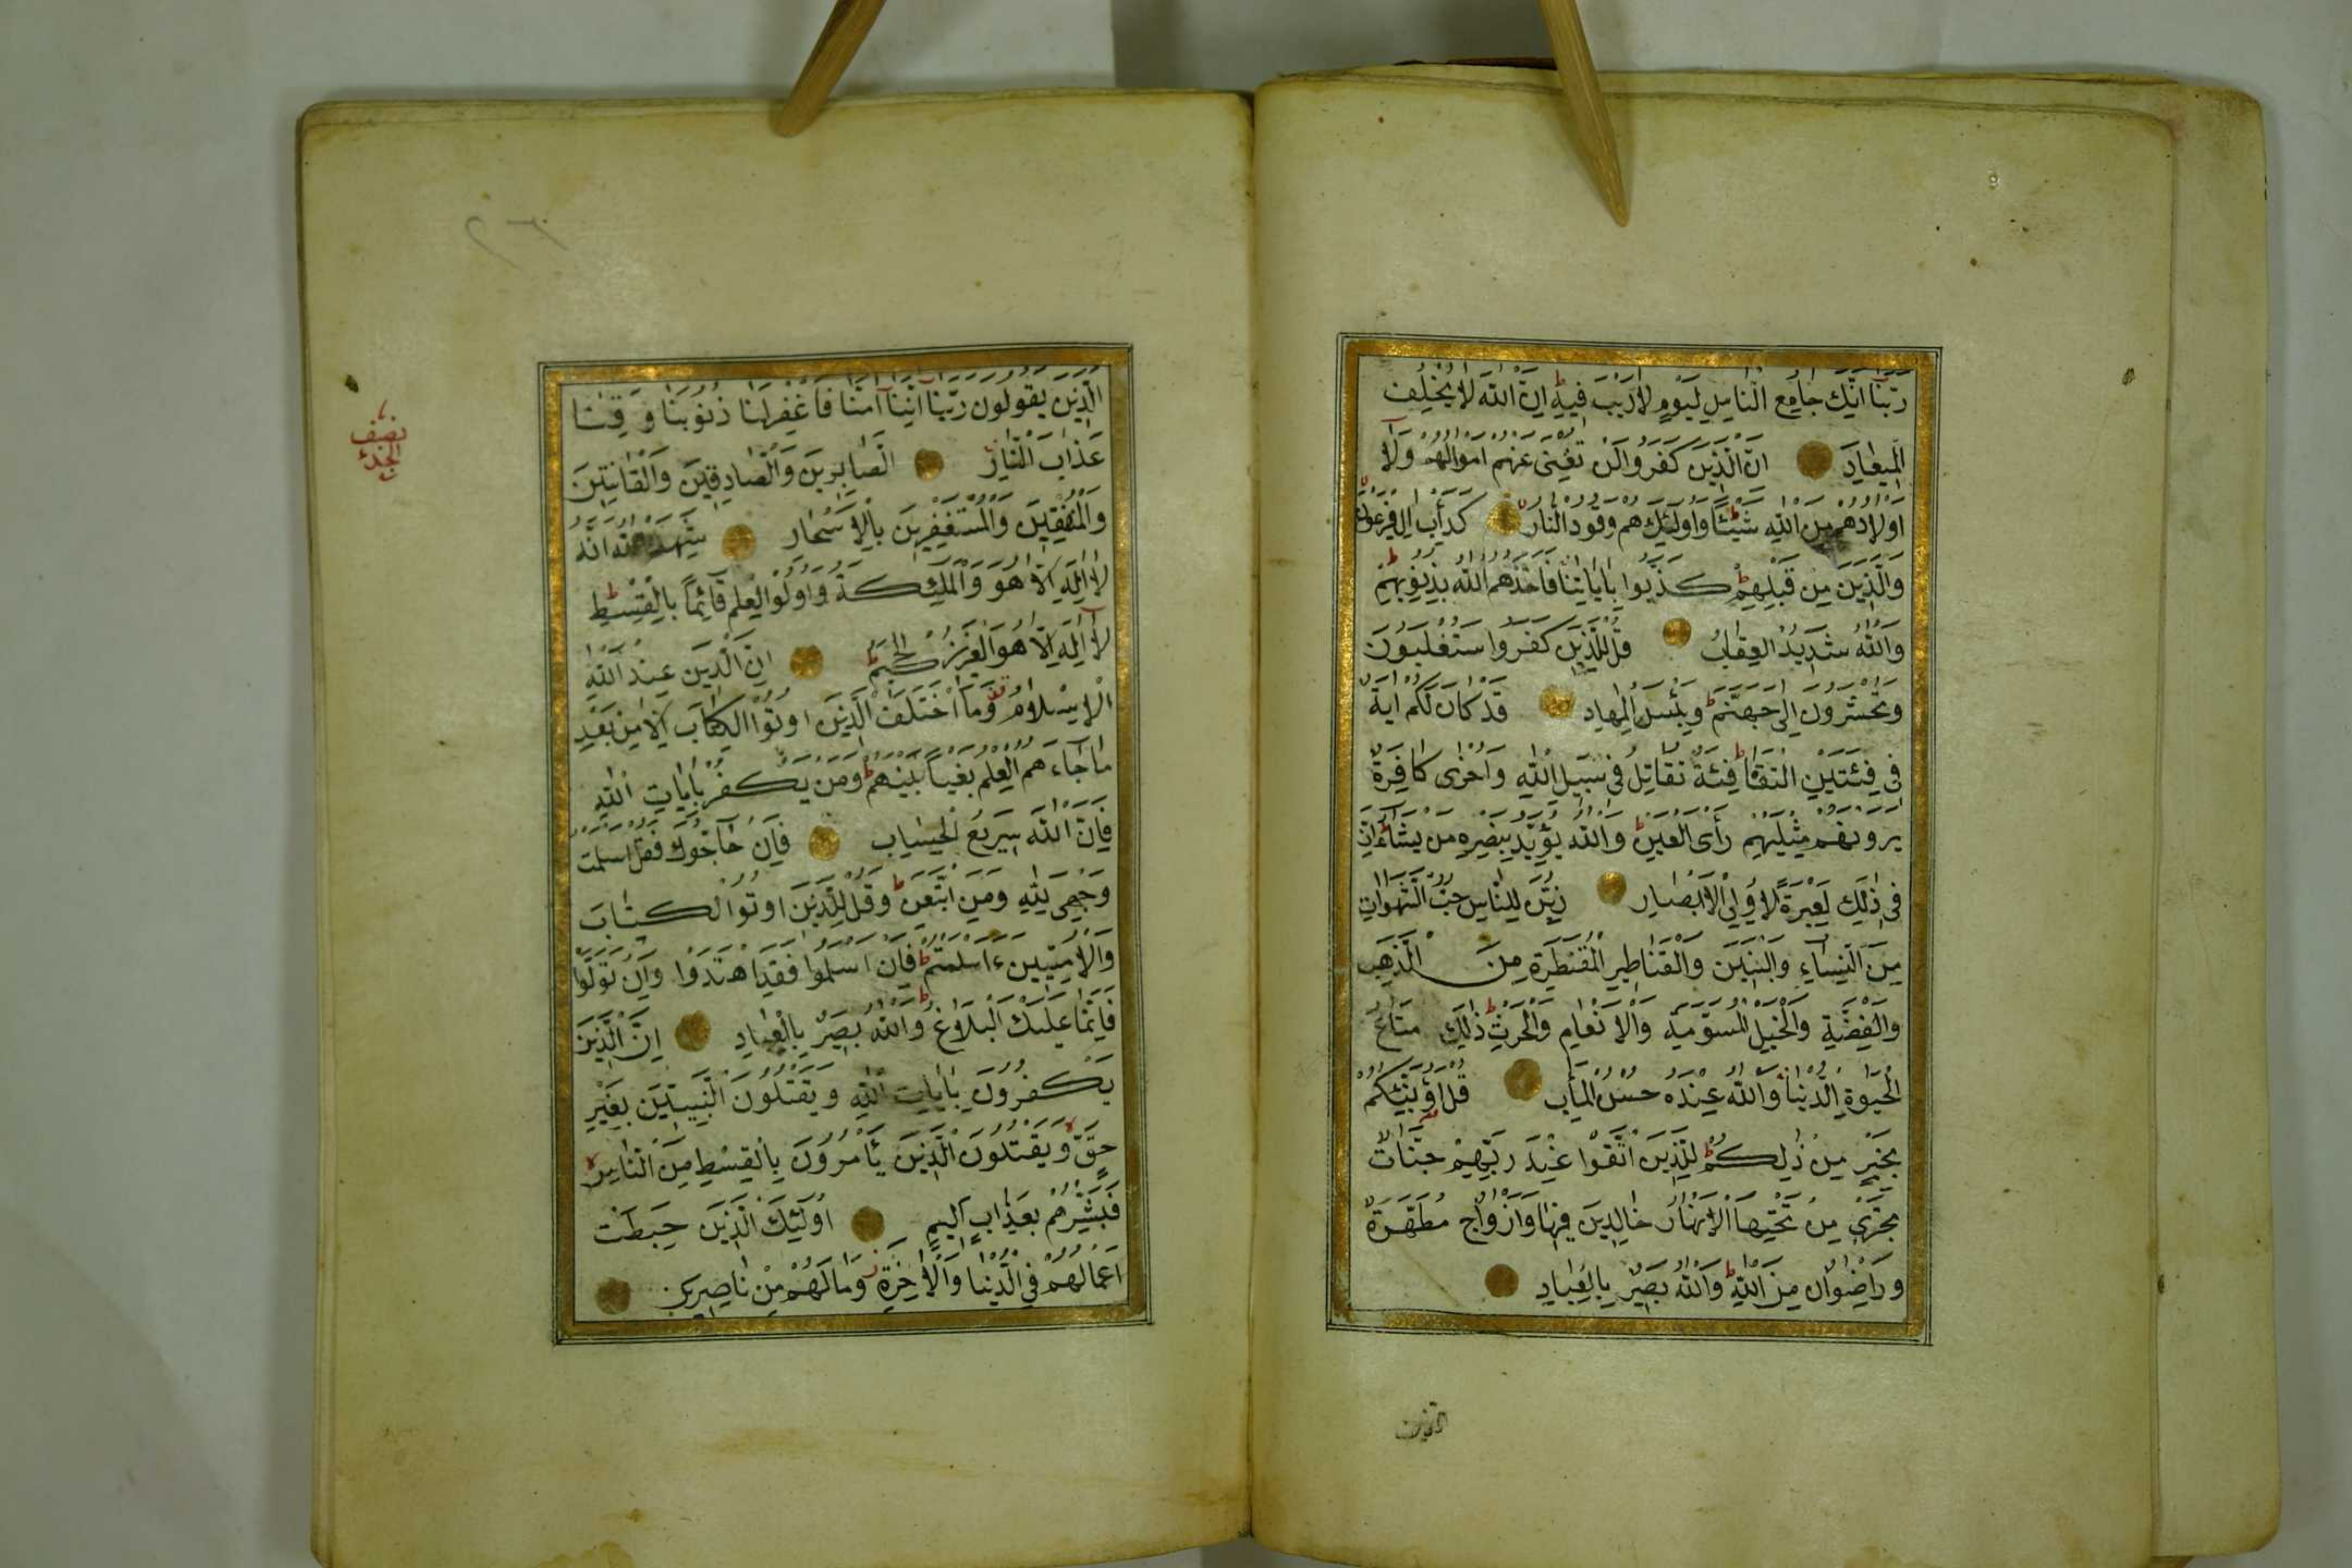 رَبَّنَا اِنَّكَ جَامِعُ النَّاسِ لِيَوْمٍ لَارَيْبَ فِيهِ ط اِنَّ اللّٰهَ لَا يُخْلِفُ
الْمِيعَادَ اِنَّ الَّذِينَ كَفَرُوا لَنْ تُغْنِىَ عَنْهُمْ اَمْوَالُهُمْ وَلَٓا
اَوْلَادُهُمْ مِنَ اللّٰهِ شَيْئًا وَاُولٰٓئِكَ هُمْ وَقُودُ النَّارِ كَدَأْبِ اٰلِ فِرْعَوْنَ
وَالَّذِينَ مِنْ قَبْلِهِمْ ط كَذَّبُوا بِاٰيَاتِنَا فَاَخَذَهُمُ اللّٰهُ بِذُنُوبِهِمْ ط
وَاللّٰهُ شَدِيدُ الْعِقَابِ قُلْ لِلَّذِينَ كَفَرُوا سَتُغْلَبُونَ
وَتُحْشَرُونَ اِلٰى جَهَنَّمَ ط وَبِئْسَ الْمِهَادُ قَدْ كَانَ لَكُمْ اٰيَةٌ
فِى فِئَتَيْنِ الْتَقَتَا ط فِئَةٌ تُقَاتِلُ فِى سَبِيلِ اللّٰهِ وَاُخْرٰى كَافِرَةٌ
يَرَوْنَهُمْ مِثْلَيْهِمْ رَأْىَ الْعَيْنِ ط وَاللّٰهُ يُؤَيِّدُ بِنَصْرِهِ مَنْ يَشَٓاءُ اِنَّ
فِى ذٰلِكَ لَعِبْرَةً لِاُولِى الْاَبْصَارِ زُيِّنَ لِلنَّاسِ حُبُّ الشَّهَوَاتِ
مِنَ النِّسَٓاءِ وَالْبَنِينَ وَالْقَنَاطِيرِ الْمُقَنْطَرَةِ مِنَ الذَّهَبِ
وَالْفِضَّةِ وَالْخَيْلِ الْمُسَوَّمَةِ وَالْاَنْعَامِ وَالْحَرْثِ ط ذٰلِكَ مَتَاعُ
الْحَيٰوةِ الدُّنْيَا وَاللّٰهُ عِنْدَهُ حُسْنُ الْمَاٰبِ قُلْ اَؤُنَبِّئُكُمْ
بِخَيْرٍ مِنْ ذٰلِكُمْ ط لِلَّذِينَ اتَّقَوْا عِنْدَ رَبِّهِمْ جَنَّاتٌ
تَجْرِى مِنْ تَحْتِهَا الْاَنْهَارُ خَالِدِينَ فِيهَا وَاَزْوَاجٌ مُطَهَّرَةٌ
وَرِضْوَانٌ مِنَ اللّٰهِ ط وَاللّٰهُ بَصِيرٌ بِالْعِبَادِ
الذين
نصف
الجزء
اَلَّذِينَ يَقُولُونَ رَبَّنَٓا اِنَّنَٓا اٰمَنَّا فَاغْفِرْلَنَا ذُنُوبَنَا وَقِنَا
عَذَابَ النَّارِ اَلصَّابِرِينَ وَالصَّادِقِينَ وَالْقَانِتِينَ
وَالْمُنْفِقِينَ وَالْمُسْتَغْفِرِينَ بِالْاَسْحَارِ شَهِدَ اللّٰهُ اَنَّهُ
لَٓا اِلٰهَ اِلَّا هُوَ وَالْمَلٰٓئِكَةُ وَاُولُوا الْعِلْمِ قَٓائِمًا بِالْقِسْطِ ط
لَٓا اِلٰهَ اِلَّا هُوَ الْعَزِيزُ الْحَكِيمُ ط اِنَّ الدِّينَ عِنْدَ اللّٰهِ
الْاِسْلَامُ وَمَا اخْتَلَفَ الَّذِينَ اُوتُوا الْكِتَابَ اِلَّا مِنْ بَعْدِ
مَا جَٓاءَهُمُ الْعِلْمُ بَغْيًا بَيْنَهُمْ ط وَمَنْ يَكْفُرْ بِاٰيَاتِ اللّٰهِ
فَاِنَّ اللّٰهَ سَرِيعُ الْحِسَابِ فَاِنْ حَٓاجُّوكَ فَقُلْ اَسْلَمْتُ
وَجْهِىَ لِلّٰهِ وَمَنِ اتَّبَعَنِ ط وَقُلْ لِلَّذِينَ اُوتُوا الْكِتَابَ
وَالْاُمِّيِّينَ ءَاَسْلَمْتُمْ ط فَاِنْ اَسْلَمُوا فَقَدِ اهْتَدَوْا وَاِنْ تَوَلَّوْا
فَاِنَّمَا عَلَيْكَ الْبَلَاغُ ط وَاللّٰهُ بَصِيرٌ بِالْعِبَادِ اِنَّ الَّذِينَ
يَكْفُرُونَ بِاٰيَاتِ اللّٰهِ وَيَقْتُلُونَ النَّبِيِّينَ بِغَيْرِ
حَقٍّ لا وَيَقْتُلُونَ الَّذِينَ يَأْمُرُونَ بِالْقِسْطِ مِنَ النَّاسِ لا
فَبَشِّرْهُمْ بِعَذَابٍ اَلِيمٍ اُولٰٓئِكَ الَّذِينَ حَبِطَتْ
اَعْمَالُهُمْ فِى الدُّنْيَا وَالْاٰخِرَةِ ز وَمَا لَهُمْ مِنْ نَاصِرِينَ